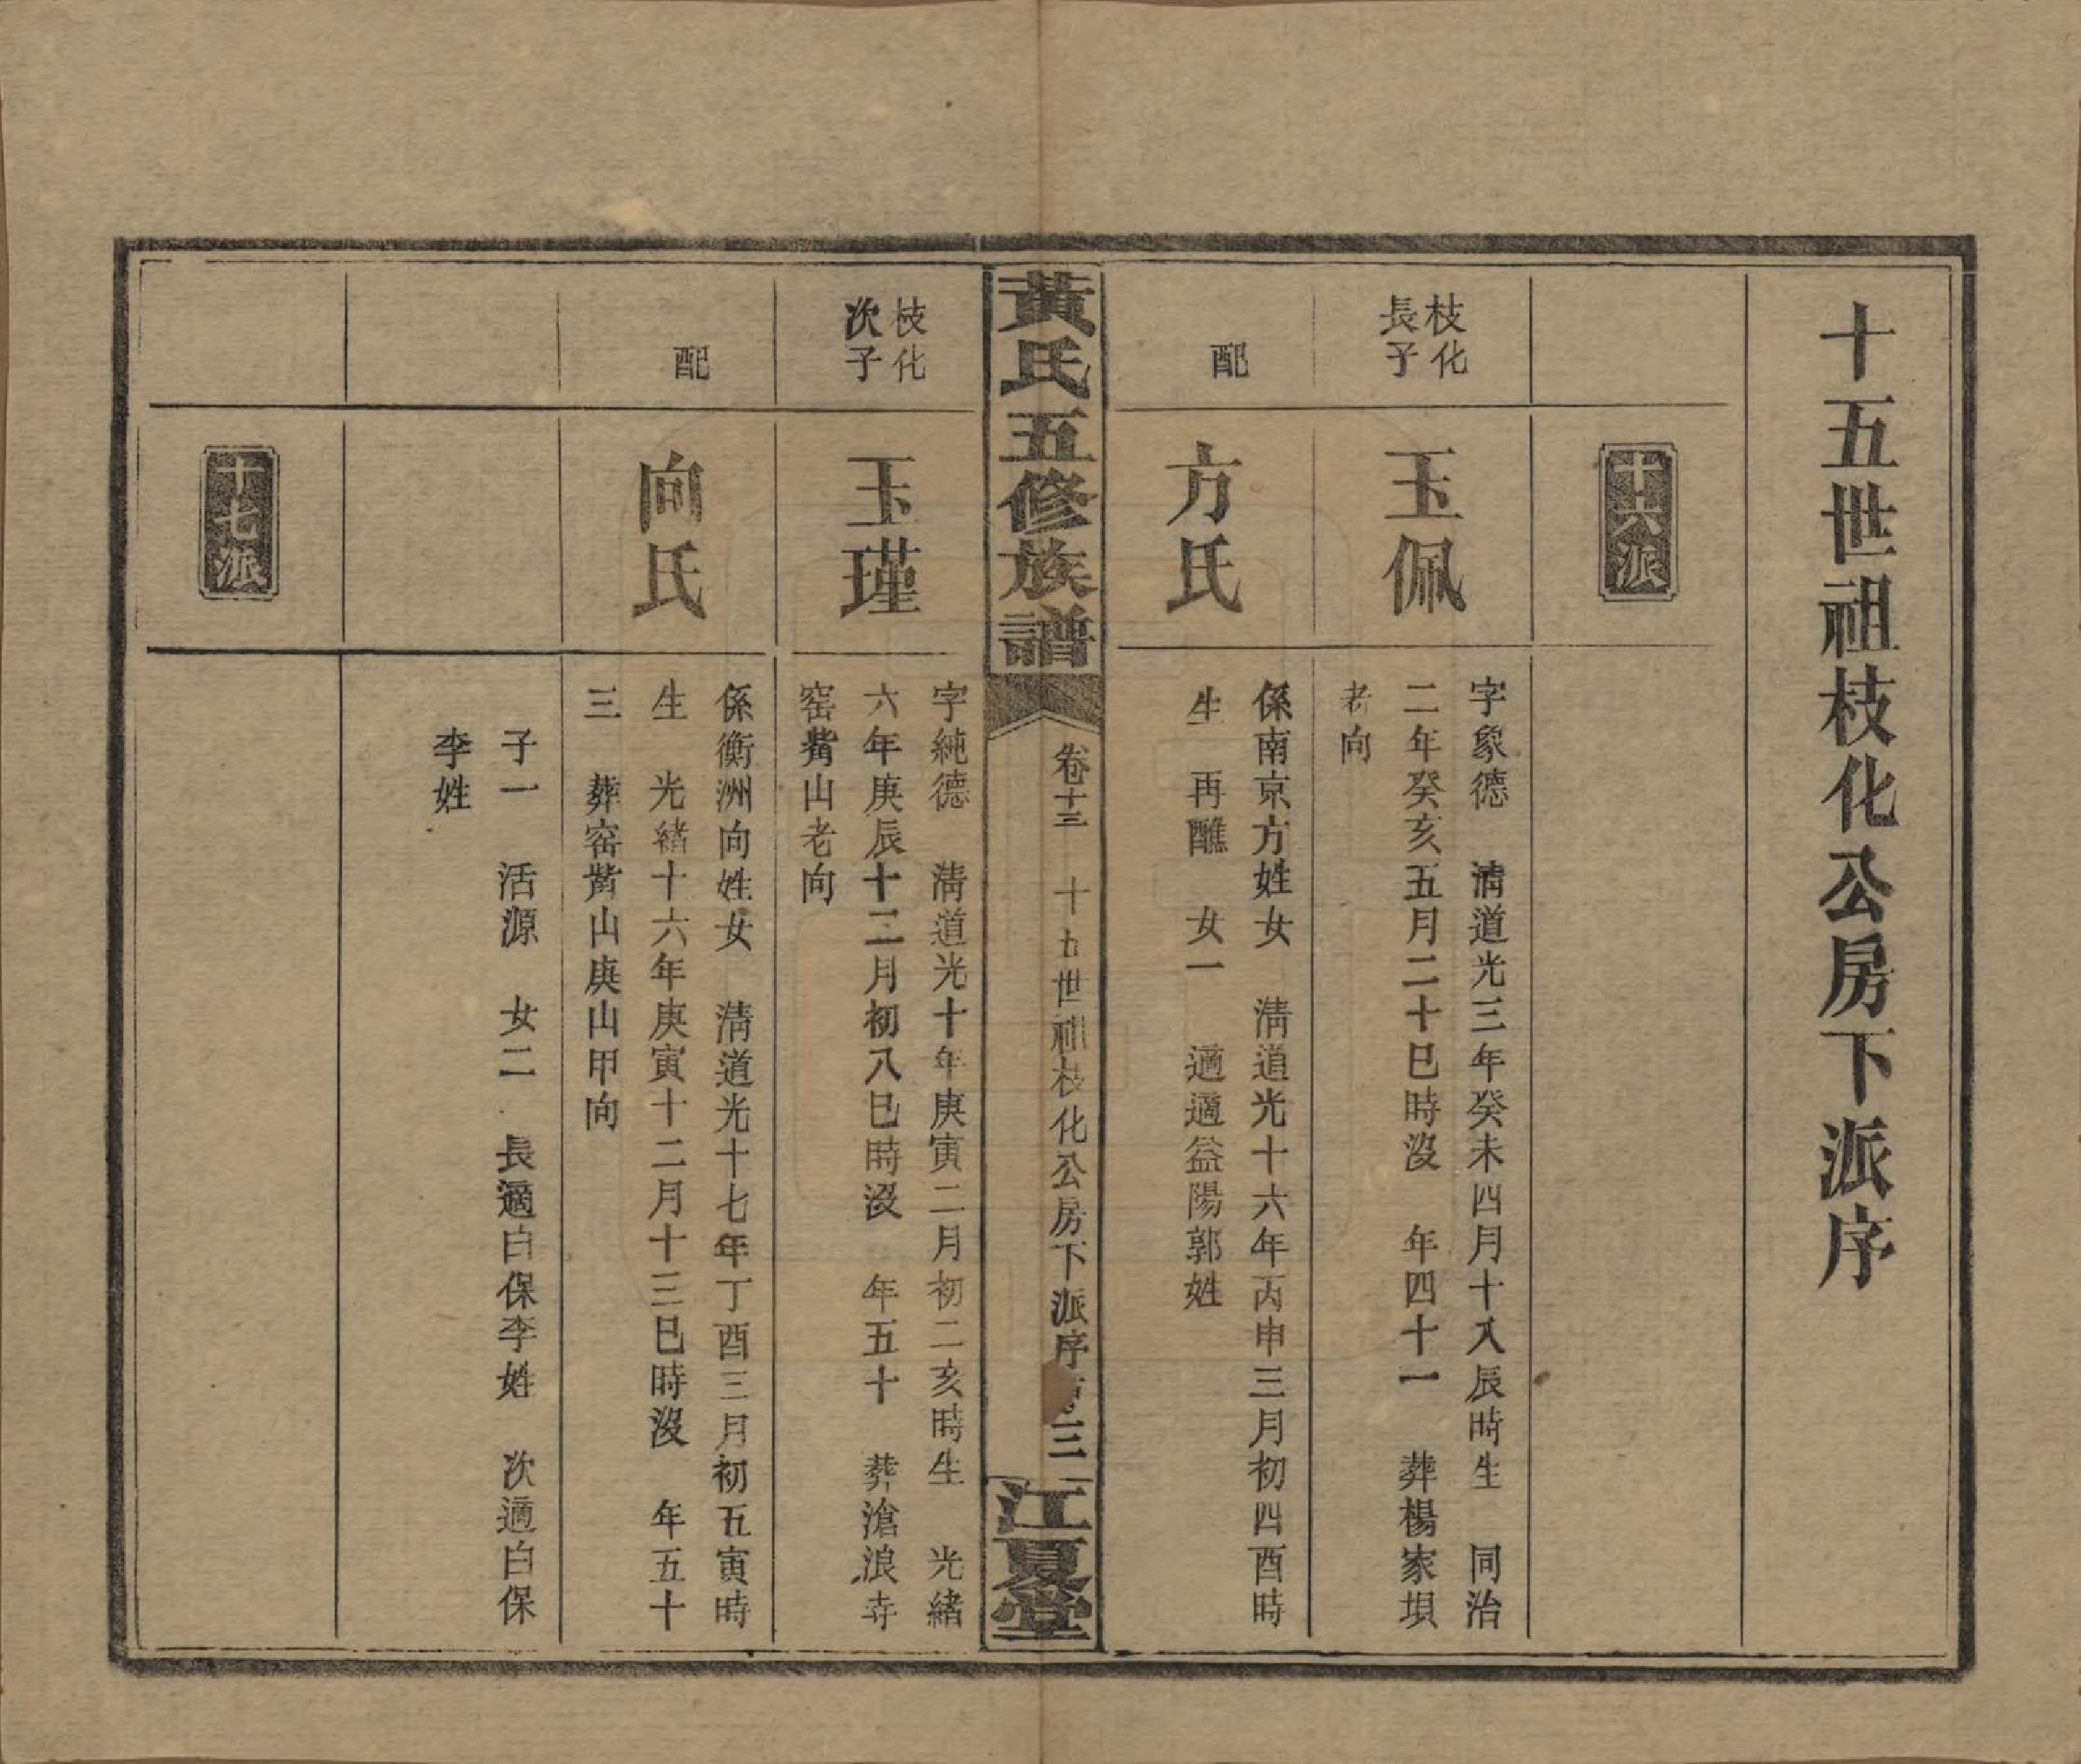 十五世祖枝化公房下派序
十六派
枝化
長子
玉佩
字象德　清道光三年癸未四月十八辰時生　同治
二年癸亥五月二十巳時沒　年四十一　葬楊家垻
老向
配
方氏
係南京方姓女　清道光十六年丙申三月初四酉時
生　再醮　女一　適適益陽郭姓
黃氏五修族譜
卷十三　十五世祖枝化公房下派序
三
江夏堂
枝化
次子
玉瑾
字純德　清道光十年庚寅二月初二亥時生　光緒
六年庚辰十二月初八巳時沒　年五十　葬滄浪寺
窑觜山老向
配
向氏
係衡洲向姓女　清道光十七年丁酉三月初五寅時
生　光緒十六年庚寅十二月十三巳時沒　年五十
三　葬窑觜山庚山甲向
子一　活源　女二　長適白保李姓　次適白保
李姓
十七派